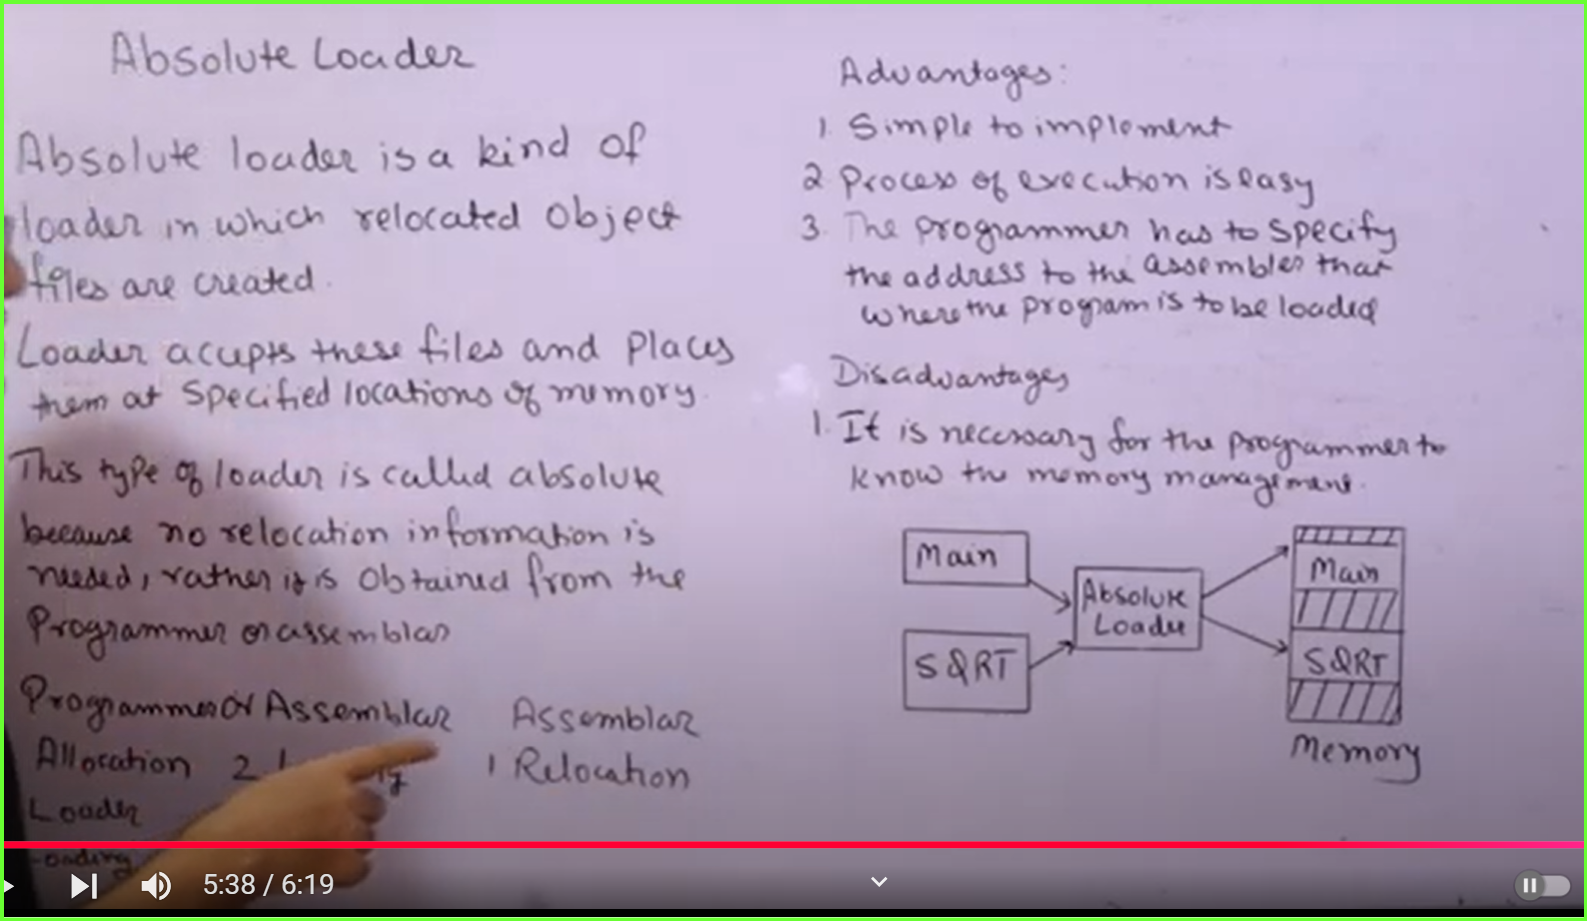 Absolute Loader
Absolute loader is a kind of
loader in which relocated object
files are created.
Loader accepts these files and places
them at specified locations of memory.
This type of loader is called absolute
because no relocation information is
needed, rather it is obtained from the
Programmer or assemblar
Programmer or Assemblar Assemblar
Allocation 2 1 Relocation
Loader
Loading
Advantages:
1. Simple to implement
2 Process of execution is easy
3. The programmer has to specify
the address to the assembler that
where the program is to be loaded
Disadvantages
1. It is necessary for the programmer to
know the memory management.
Main
SQRT
Absolute
Loader
Main
SQRT
Memory
5:38 / 6:19